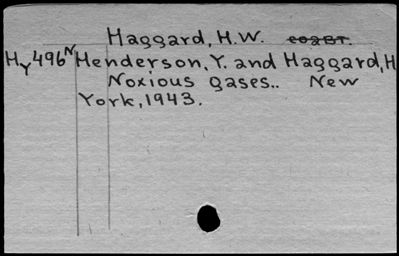 Haggard, H.W. соавт.
Hy496N Henderson, Y. and Haggard, H
Noxious gases.. New
York, 1943.